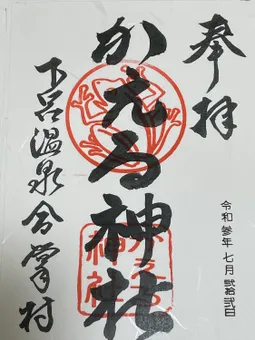 奉拝
かえる神社
かえる
神社
令和 参年 七月 弐拾弐日
下呂温泉合掌村